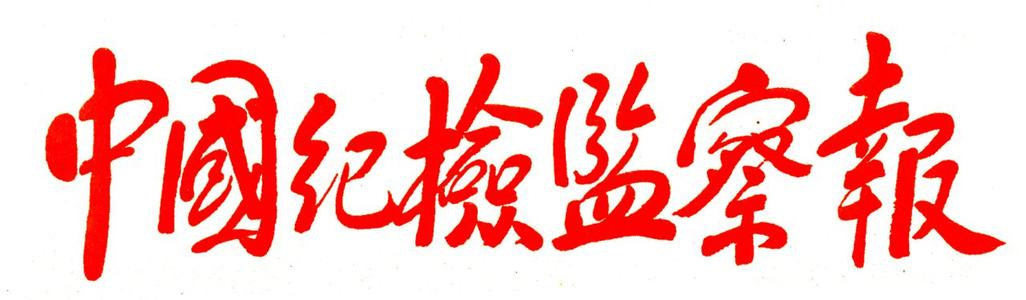 中國纪檢監察報